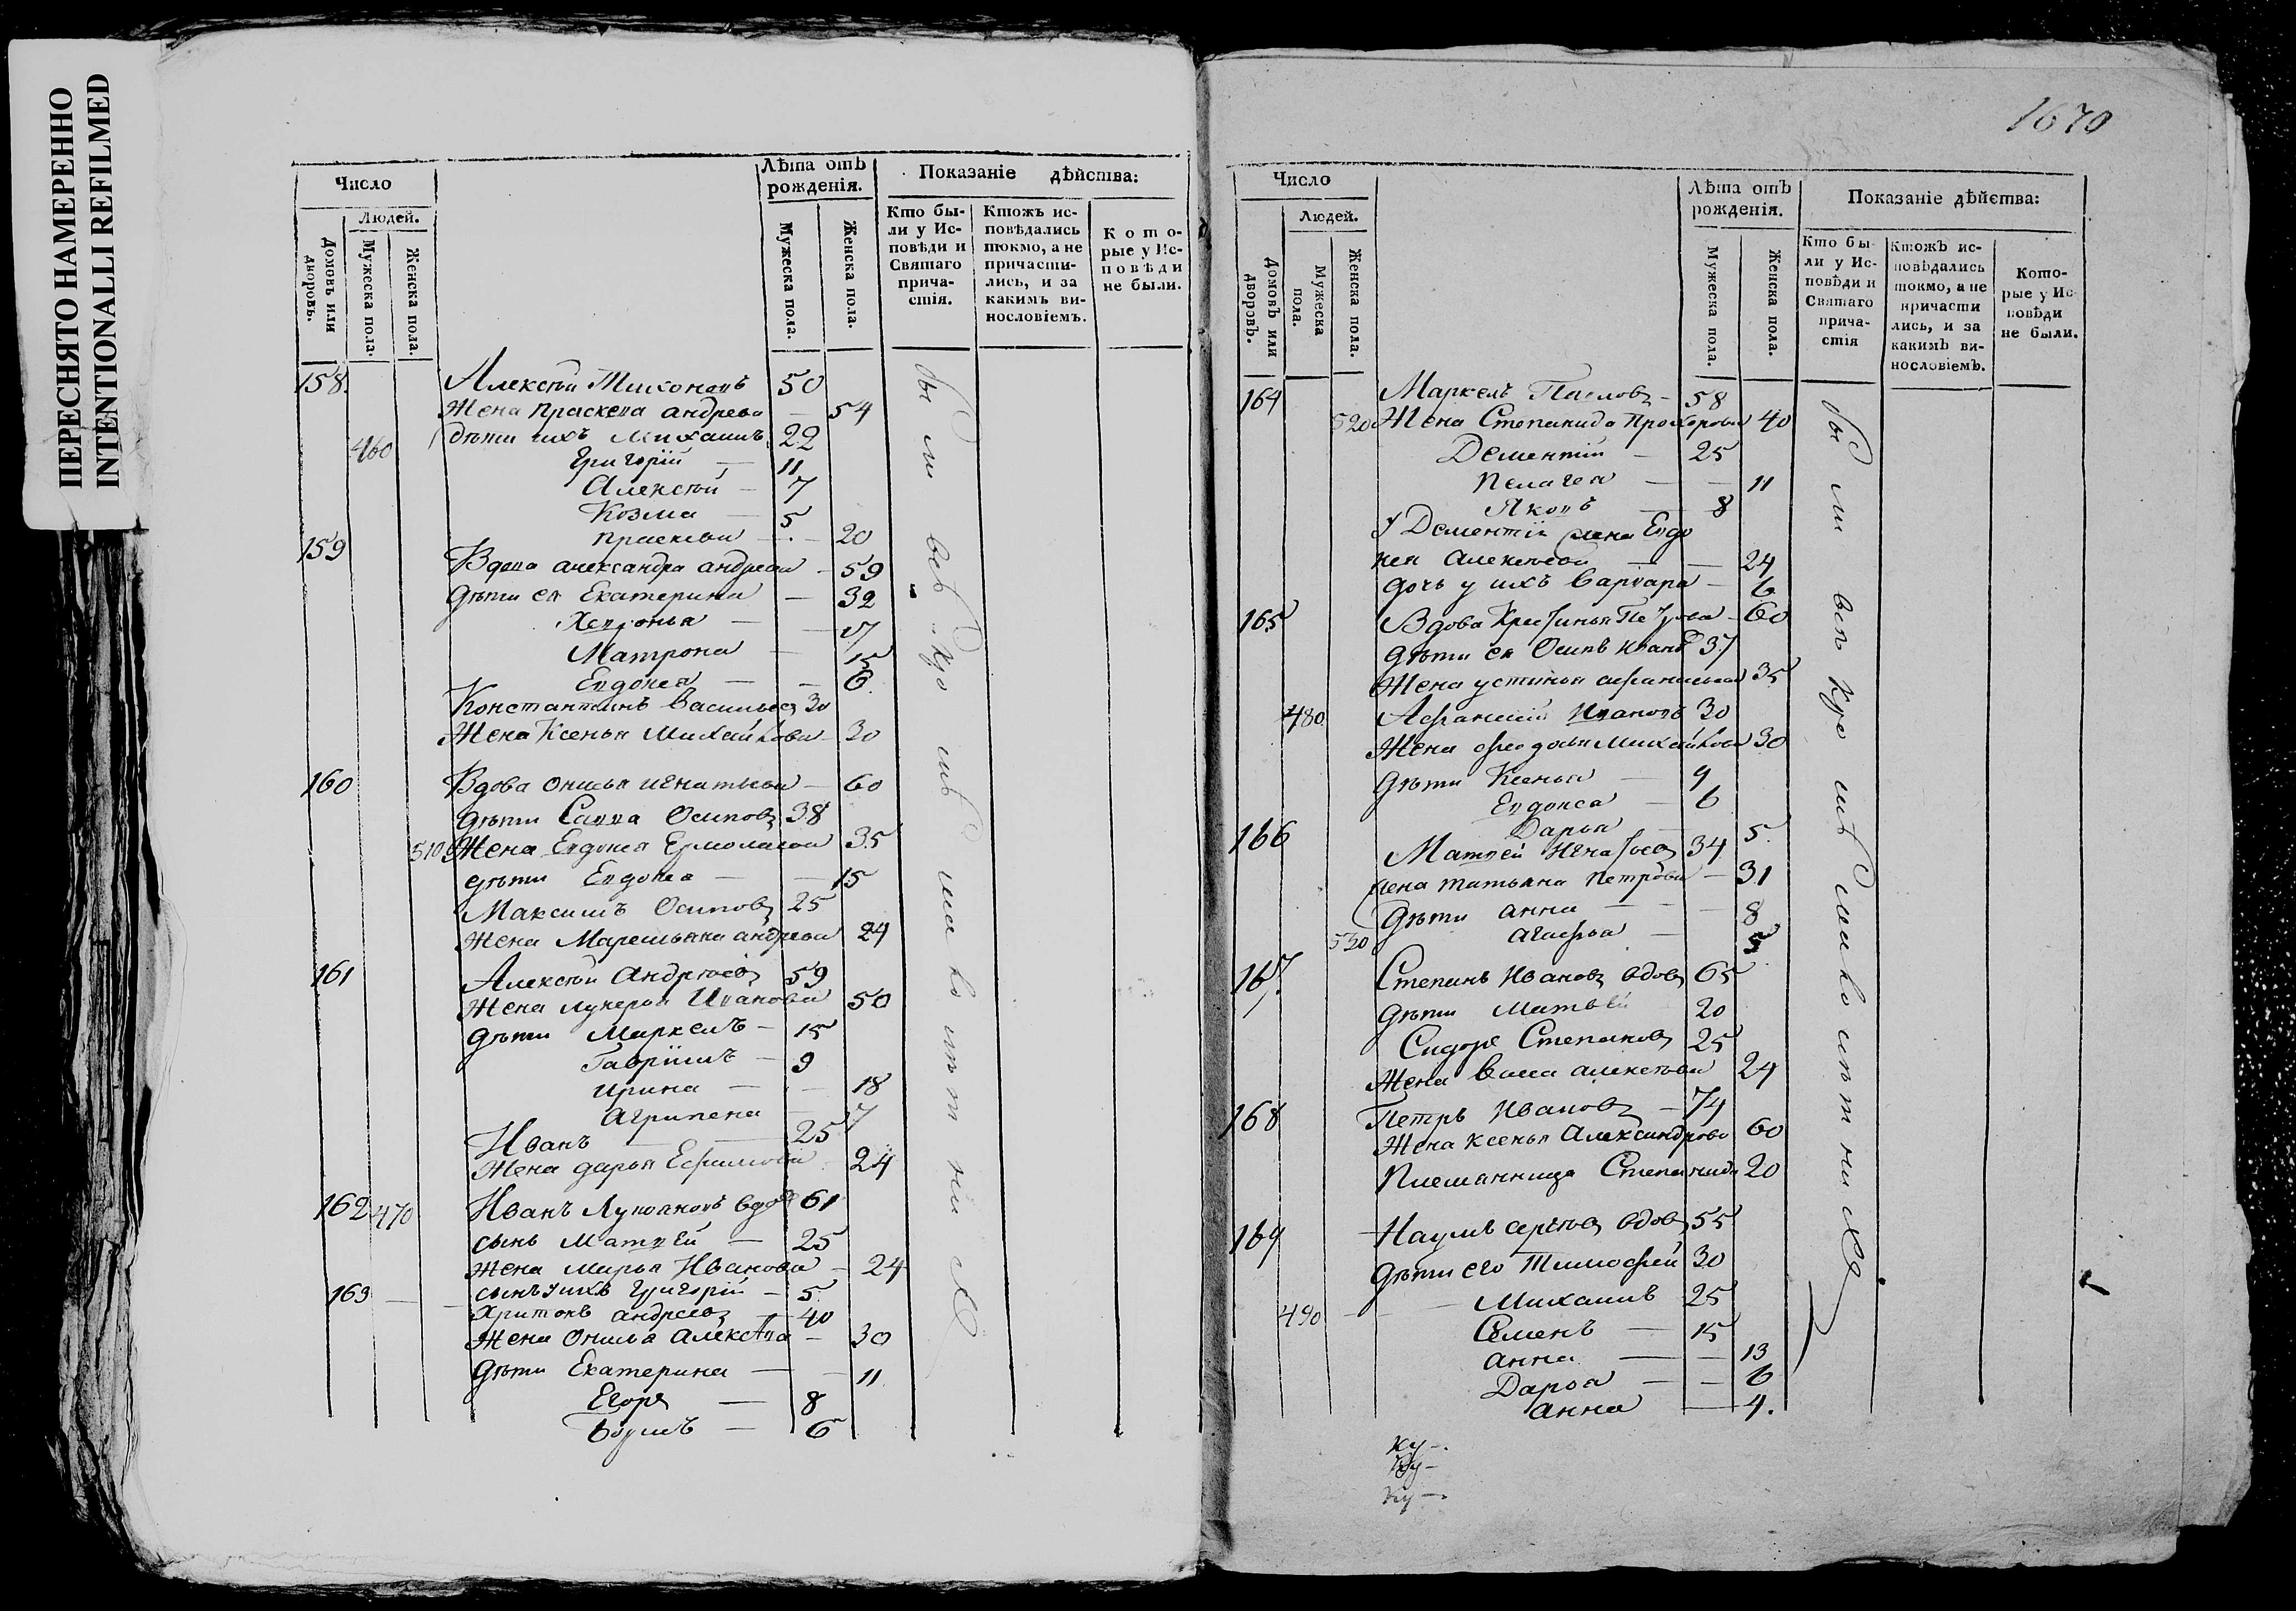 ПЕРЕСНЯТО НАМЕРЕННО
INTENTIONALLI REFILMED
Число
Людей.
Домовъ или дворовъ.
Мужеска пола.
Женска пола.
Лѣта отъ рожденія.
Мужеска пола.
Женска пола.
Показаніе дѣйства:
Кто бы-
ли у Ис-
повѣди и
Святаго
прича-
стія.
Ктожъ ис-
повѣдались
токмо, а не
причасти-
лись, и за
какимъ ви-
нословіемъ.
Кото-
рые у Ис-
повѣди
не были.
158. Алексѣй Тихоновъ 50
Жена Праскева андрева — 54
460 дѣти ихъ Михаилъ 22
Григорій — 11
Алексѣй — 7
Козма — 5
Праскева — 20
159 Вдова александра андрева — 59
Дѣти ея Екатерина — 32
Матрона — 15
Евдокея — 6.
Константинъ Васильевъ 30
Жена Ксенья Михайлова 30
160 Вдова Онисья игнатьева — 60
Дѣти Савва Осиповъ 38
510 Жена Евдокея Ермолаева 35
дѣти Евдокея — 15
Максимъ Осиповъ 25
Жена Маремьяна андрева 24
161 Алексѣй Андрѣевъ 59
Жена лукерья Иванова 50
Дѣти Маркелъ — 15
Гавріилъ — 9
Ирина — 18
Агрипена — 7
Иванъ — 25
Жена дарья Ефимова 24
162 470 Иванъ Лукояновъ вдовъ 61
сынъ Матвей — 25
Жена Марья Иванова — 24
163 сынъ у ихъ Григорій — 5.
Харитонъ андреевъ — 40
Жена Онисья Алексѣва — 30
Дѣти Екатерина — 11
Егоръ — 8
6
бы ли всѣ
1670
Число
Людей.
Домовъ или дворовъ.
Мужеска пола.
Женска пола.
Лѣта отъ рожденія.
Мужеска пола.
Женска пола.
Показаніе дѣйства:
Кто бы-
ли у Ис-
повѣди и
Святаго
прича-
стія
Ктожъ ис-
повѣдались
токмо, а не
причасти
лись, и за
какимъ ви-
нословіемъ.
Кото-
рые у Ис-
повѣди
не были.
164 Маркелъ Павловъ — 58
520 Жена Степанида Прохорова 40
Дементій — 25
Пелагея — 11
Яковъ 8
У Дементія жена Евдо
кея Алексѣева — 24
дочь у ихъ Варвара — 6
165 Вдова Петрова — 60
Дѣти ея Осипъ Иванъ 37
Жена устинья афанасьева 35
480 Афанасій Ивановъ 30
Жена федосья Михайлова 30
Дѣти Ксенья — 9
Евдокеа — 6
Дарья — 5.
166 Матвей Игнатьевъ 34
жена татьяна петрова — 31
Дѣти анна — 8
530 агафья — 5
167. Степанъ Ивановъ вдовъ 65
Дѣти Матвѣй 20
Сидоръ Степановъ 25
Жена Васса алексѣева 24
168 Петръ Ивановъ — 74
Жена Ксенья Александрова 60
Племянница Степанида 20
169 Наумъ сергѣевъ вдовъ 55
Дѣти его Тимофей 30
490 Михаилъ 25
Семенъ — 15
анна — 13
Дарья — 6
анна — 4.
бы ли всѣ